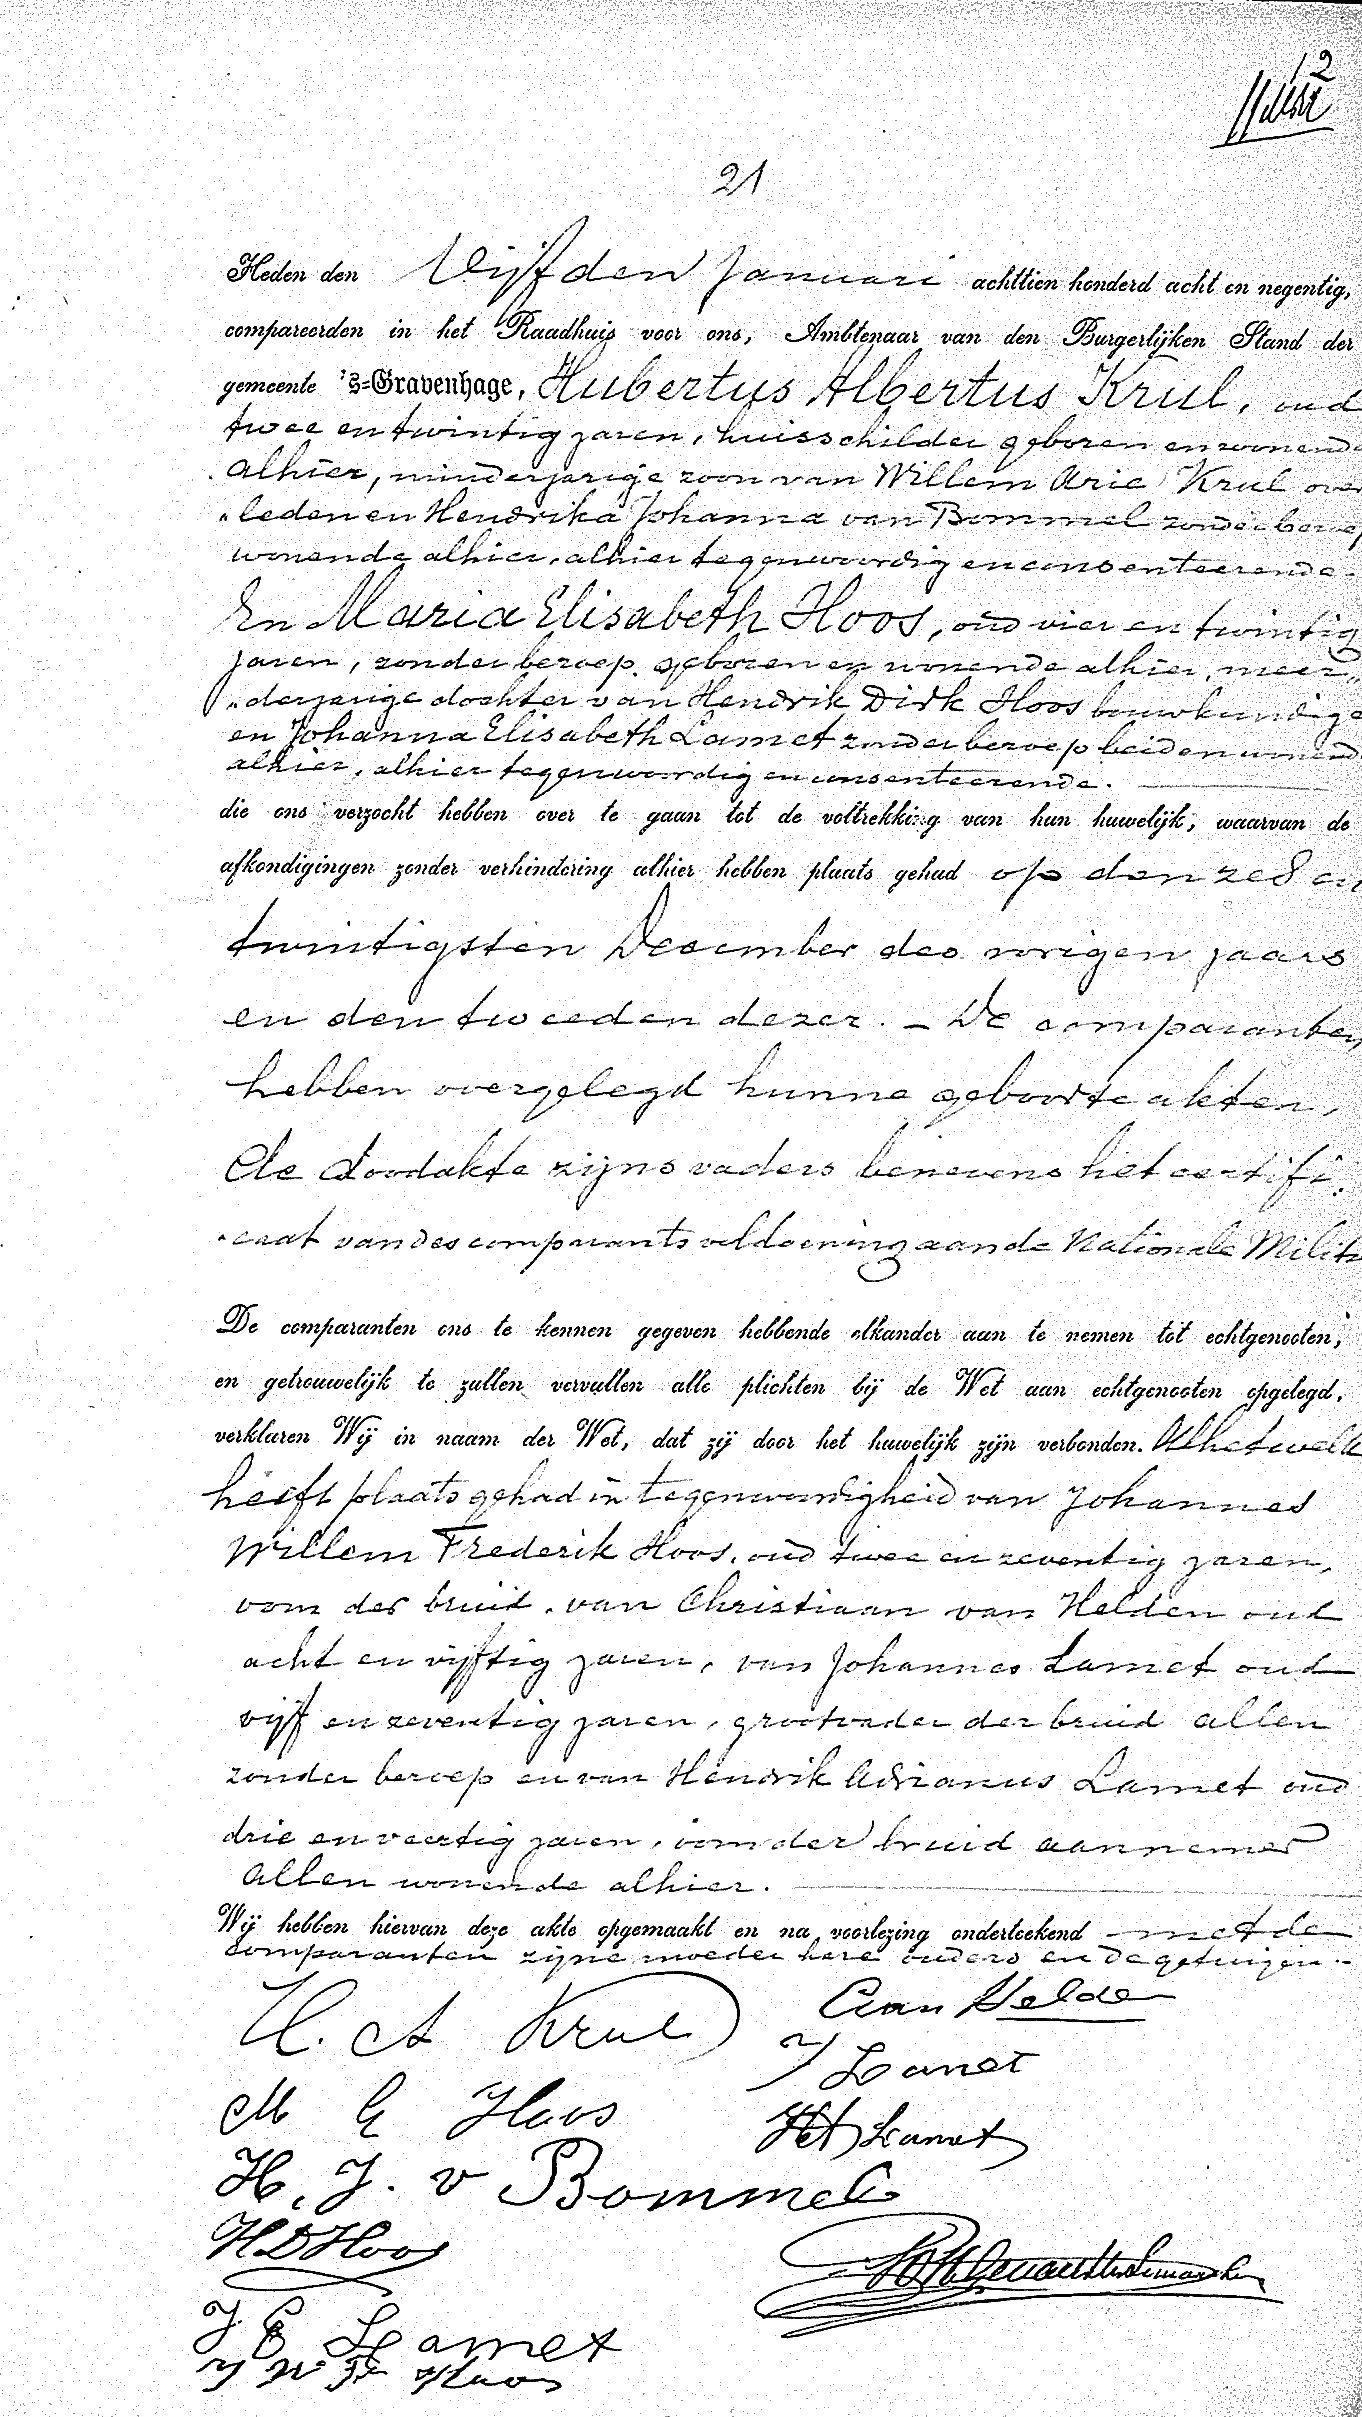 12
21
Heden den Vijfden Januari achttien honderd acht en negentig,
compareerden in het Raadhuis voor ons, Ambtenaar van den Burgerlijken Stand der
gemeente 's-Gravenhage, Hubertus Albertus Krul, oud
twee en twintig jaren, huisschilder geboren en wonende
alhier, minderjarige zoon van Willem Arie Krul over
"leden en Hendrika Johanna van Bommel zonder beroep
wonende alhier, alhier tegenwoordig en consenteerende.
En Maria Elisabeth Hoos, oud vier en twintig
jaren, zonder beroep, geboren en wonende alhier, meer"
"derjarige dochter van Hendrik Dirk Hoos bouwkundige
en Johanna Elisabeth Lamet zonder beroep beiden wonend
alhier, alhier tegenwoordig en consenteerende.
die ons verzocht hebben over te gaan tot de voltrekking van hun huwelijk, waarvan de
afkondigingen zonder verhindering alhier hebben plaats gehad op den zes en
twintigsten December des vorigen jaars
en den tweeden dezer. - De comparanten
hebben overgelegd hunne geboorte akten,
de doodakte zijns vaders benevens het certifi"
"caat van des comparants voldoening aan de Nationale Militie
De comparanten ons te kennen gegeven hebbende elkander aan te nemen tot echtgenooten,
en getrouwelijk te zullen vervullen alle plichten bij de Wet aan echtgenooten opgelegd,
verklaren Wij in naam der Wet, dat zij door het huwelijk zijn verbonden. Al hetwelk
heeft plaats gehad in tegenwoordigheid van Johannes
Willem Frederik Hoos, oud twee en zeventig jaren,
oom der bruid, van Christiaan van Helden oud
acht en vijftig jaren, van Johannes Lamet oud
vijf en zeventig jaren, grootvader der bruid allen
zonder beroep en van Hendrik Adrianus Lamet oud
drie en veertig jaren, oom der bruid aannemer
allen wonende alhier.
Wij hebben hiervan deze akte opgemaakt en na voorlezing onderteekend met de
comparanten zijne moeder hare ouders en de getuigen.
H. A Krul
C van Helden
J Lamet
M E Hoos
HA Lamet
H. J. v Bommel
H D Hoos
J E Lamet
J W F Hoos